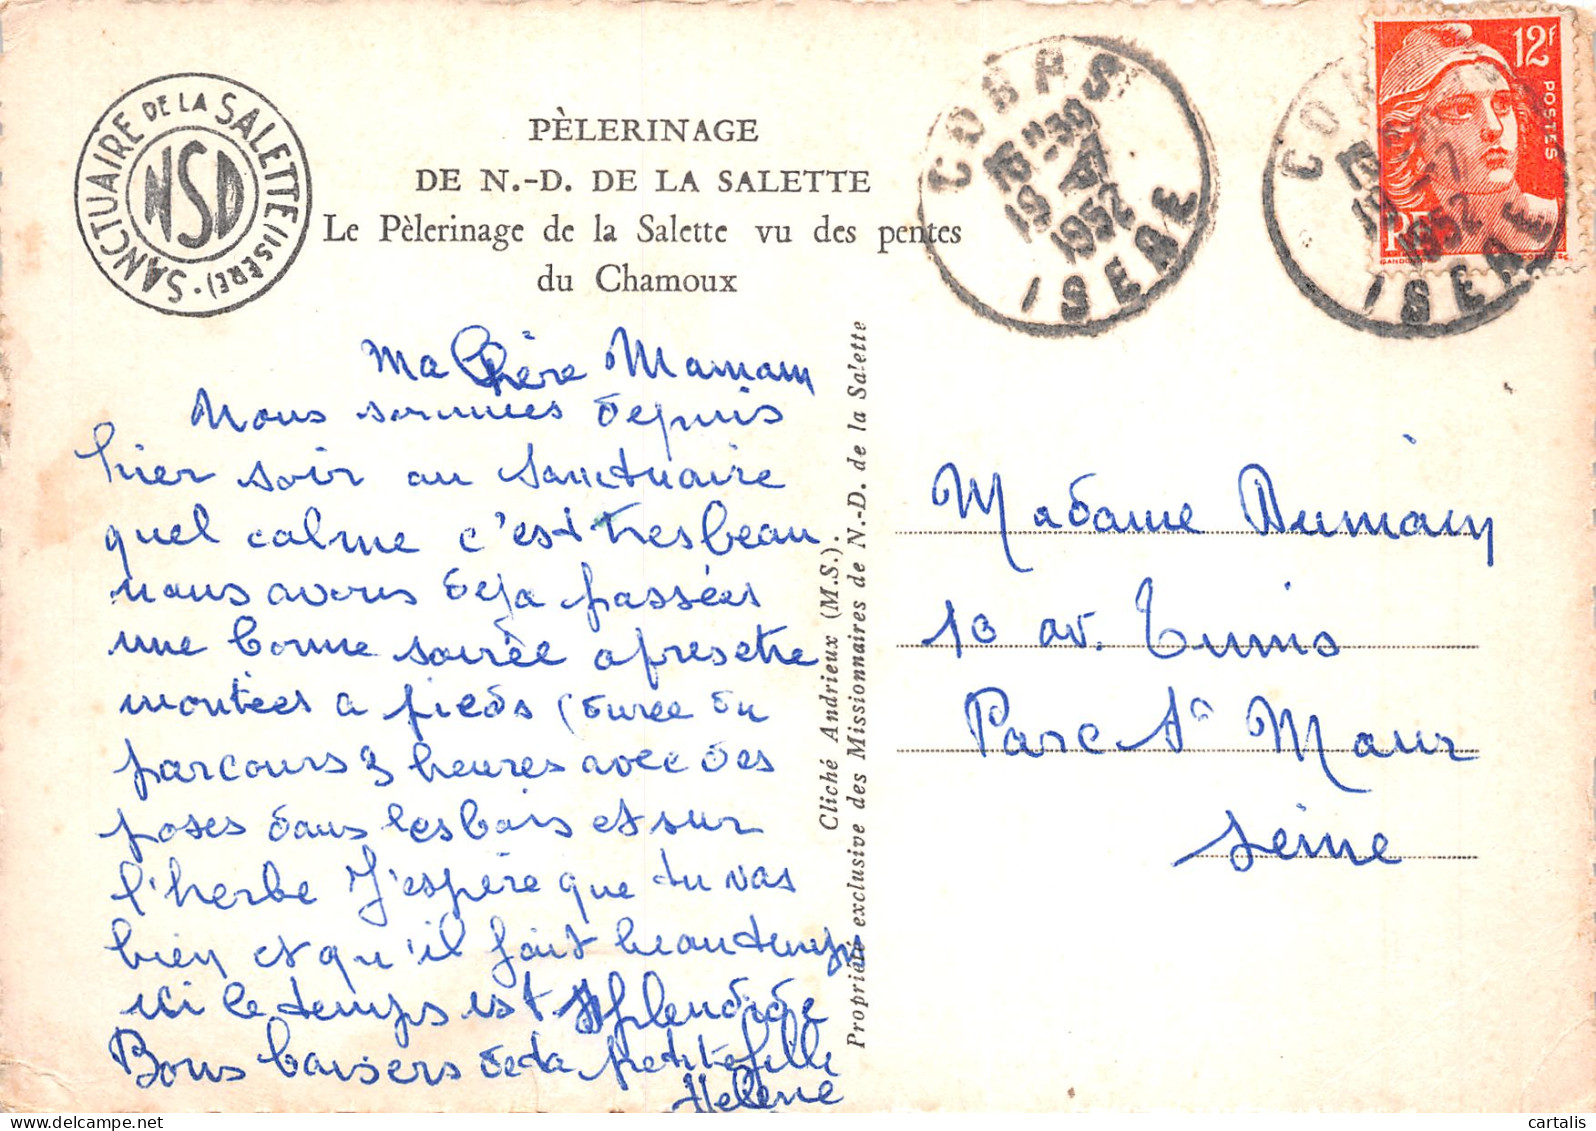 SANCTUAIRE DE LA SALETTE (ISÈRE) -
NSD
PÈLERINAGE
DE N.-D. DE LA SALETTE
Le Pèlerinage de la Salette vu des pentes
du Chamoux
CORPS
1952
ISERE
CORPS
1952
ISERE
12F
POSTES
RF
Ma Chère Maman
Nous sommes depuis
hier soir au Sanctuaire
quel calme c'est tres beau
nous avons deja passées
une bonne soirée apres etre
montées a pieds (durée du
parcours 3 heures avec des
poses dans les bois et sur
l'herbe J'espère que tu vas
bien et qu'il fait beau temps
ici le temps est splendide
Bons baisers de ta petite fille
Helene
Cliché Andrieux (M.S.).
Propriété exclusive des Missionnaires de N.-D. de la Salette
Madame Dumain
10 av. Tunis
Parc St Maur
Seine
cartalis